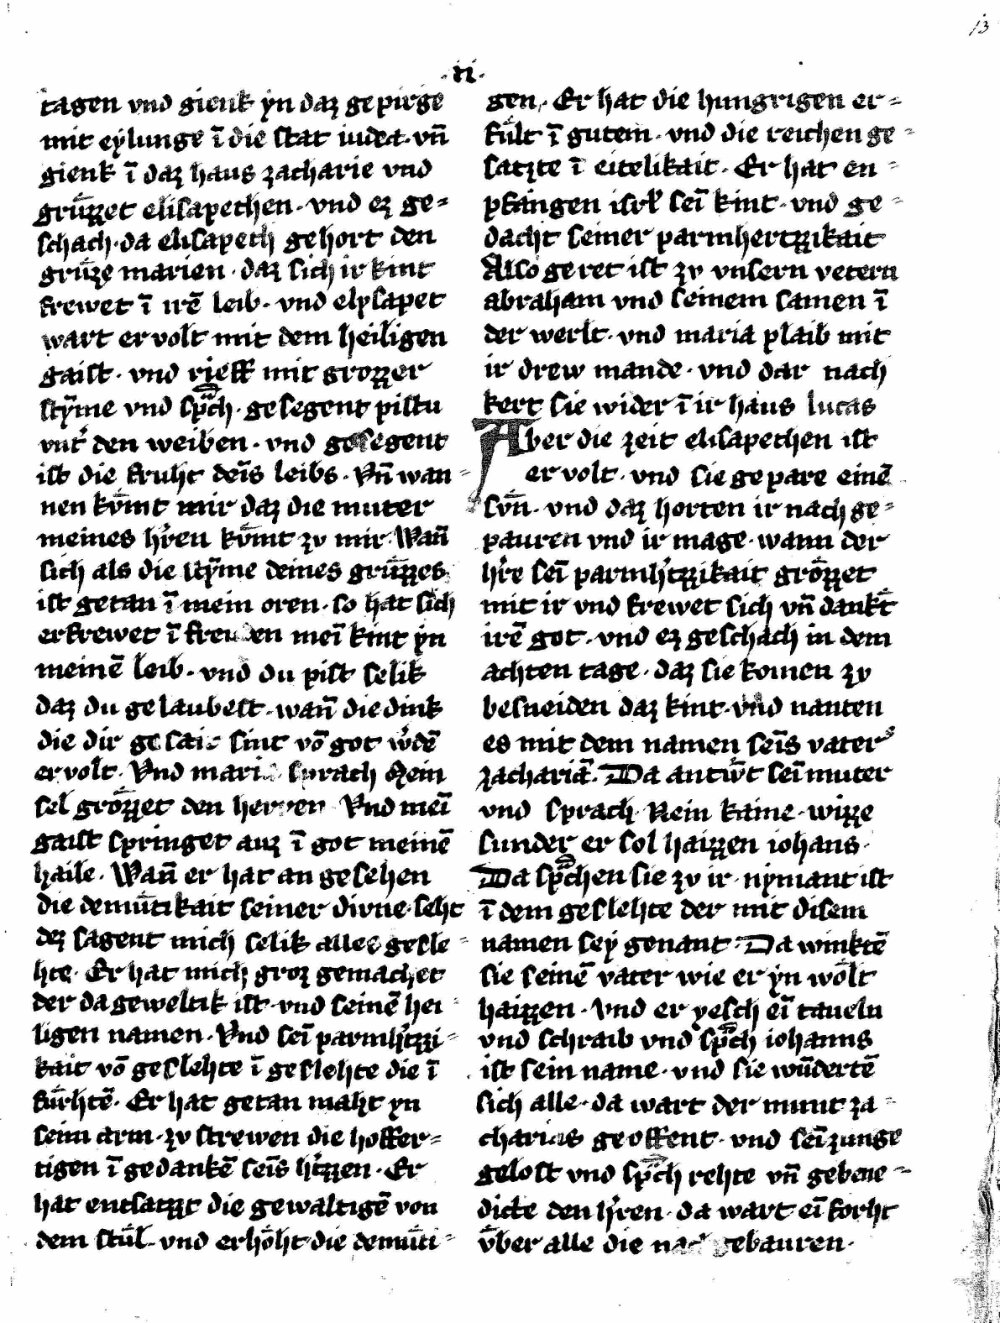 13
·vi·
tagen vnd gienk yn daz gepirge
mit eylunge ī die stat iudea· vn̄
gienk ī daz haus zacharie vnd
grüzzet elisapethen· vnd ez ge=
schach· da elisapeth gehort den
grüze marien· daz sich ir kint
frewet ī irē leib· vnd elysapet
wart ervolt mit dem heiligen
gaist· vnd rieff mit grozzer
stȳme vnd sp̄ch· gesegent pistu
vnt᷑ den weiben· vnd gesegent
ist die fruht deīs leibs· Vn̄ wan=
nen kv̄mt mir daz die muter
meines hr̄en kv̄mt zv mir· Wan̄
sich als die stȳme deines grüzzes
ist getan ī mein oren· so hat sich
erfrewet ī freuden meī kint yn
meinē leib· vnd du pist selik
daz du gelaubest· wan̄ die dink
die dir gesait sint vō got w᷑dē
ervolt· Vnd maria sprach Mein
sel grözzet den herren Vnd meī
gaist springet auz ī got meinē
haile· Wan̄ er hat an gesehen
die demütikait seiner dirne· seht
dez sagent mich selik alle gesle=
hte· Er hat mich groz gemachet
der da geweltik ist· vnd seinē hei=
ligen namen· Vnd seī parmh᷑tzzi=
kait vō geslehte ī geslehte die ī
fürhtē· Er hat getan maht yn
seim arm· zv strewen die hoffer=
tigen ī gedankē seīs h᷑tzzen· Er
hat entsatzt die gewaltigē von
dem stül· vnd erhöht die demüti=
gen· Er hat die hungrigen er=
fült ī gutem· vnd die reichen ge=
satzte ī eitelikait· Er hat en=
pfangen isr̄l seī kint· vnd ge=
dacht seiner parmhertzzikait
Also geret ist zv vnsern vetern
abraham vnd seinem samen ī
der werlt· vnd maria plaib mit
ir drew mande· vnd dar nach
kert sie wider ī ir haus lucas
Aber die zeit elisapethen ist
ervolt· vnd sie gepare einē
svn̄· vnd daz horten ir nachge=
pauren vnd ir mage· wann der
h᷑re seī parmh᷑tzzikait grözzet
mit ir vnd frewet sich vn̄ dankt
irē got· vnd ez geschach in dem
achten tage· daz sie komen zv
besneiden daz kint· vnd nanten
es mit dem namen seīs vaters
zachariā· Da antw᷑t seī muter
vnd sprach· Nein kaine· wizze
sunder er sol haizzen iohans·
Da sp̄chen sie zv ir· nymant ist
ī dem geslehte der mit disem
namen sey genant· Da winktē
sie seinē vater wie er yn wölt
haizzen· Vnd er yesch eī taueln
vnd schraib vnd sp̄ch iohanns
ist sein name· vnd sie wūdertē
sich alle· da wart der munt za=
charias geoffent· vnd seī zunge
gelost vnd sp̄ch rehte vn̄ gebene=
dicte den h᷑ren· da wart eī forht
über alle die nachgebauren·